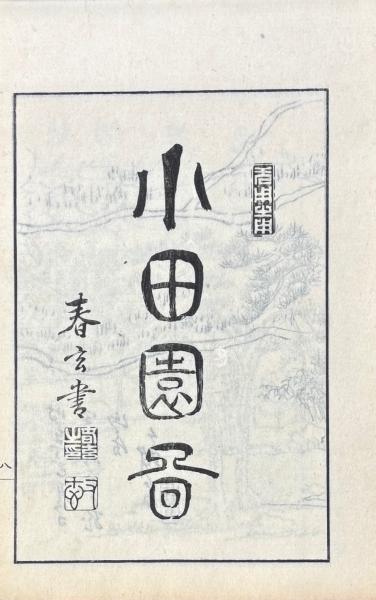 小田園啚
春玄書
八